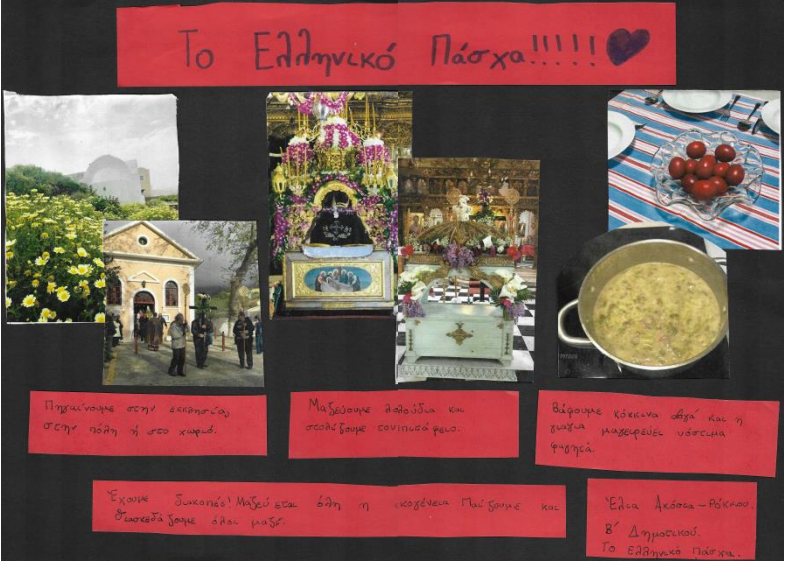 Το Ελληνικό Πάσχα!!!!!
Πηγαίνουμε στην εκκλησία,
στην πόλη ή στο χωριό.
Μαζεύουμε λουλούδια και
στολίζουμε τον επιτάφειο.
Βάφουμε κόκκινα αβγά και η
γιαγιά μαγειρεύει νόστιμα
φαγητά.
Έχουμε διακοπές! Μαζεύεται όλη η οικογένεια Παίζουμε και
διασκεδάζουμε όλοι μαζί.
Έλια
Β' Δημοτικού.
Το Ελληνικό Πάσχα.